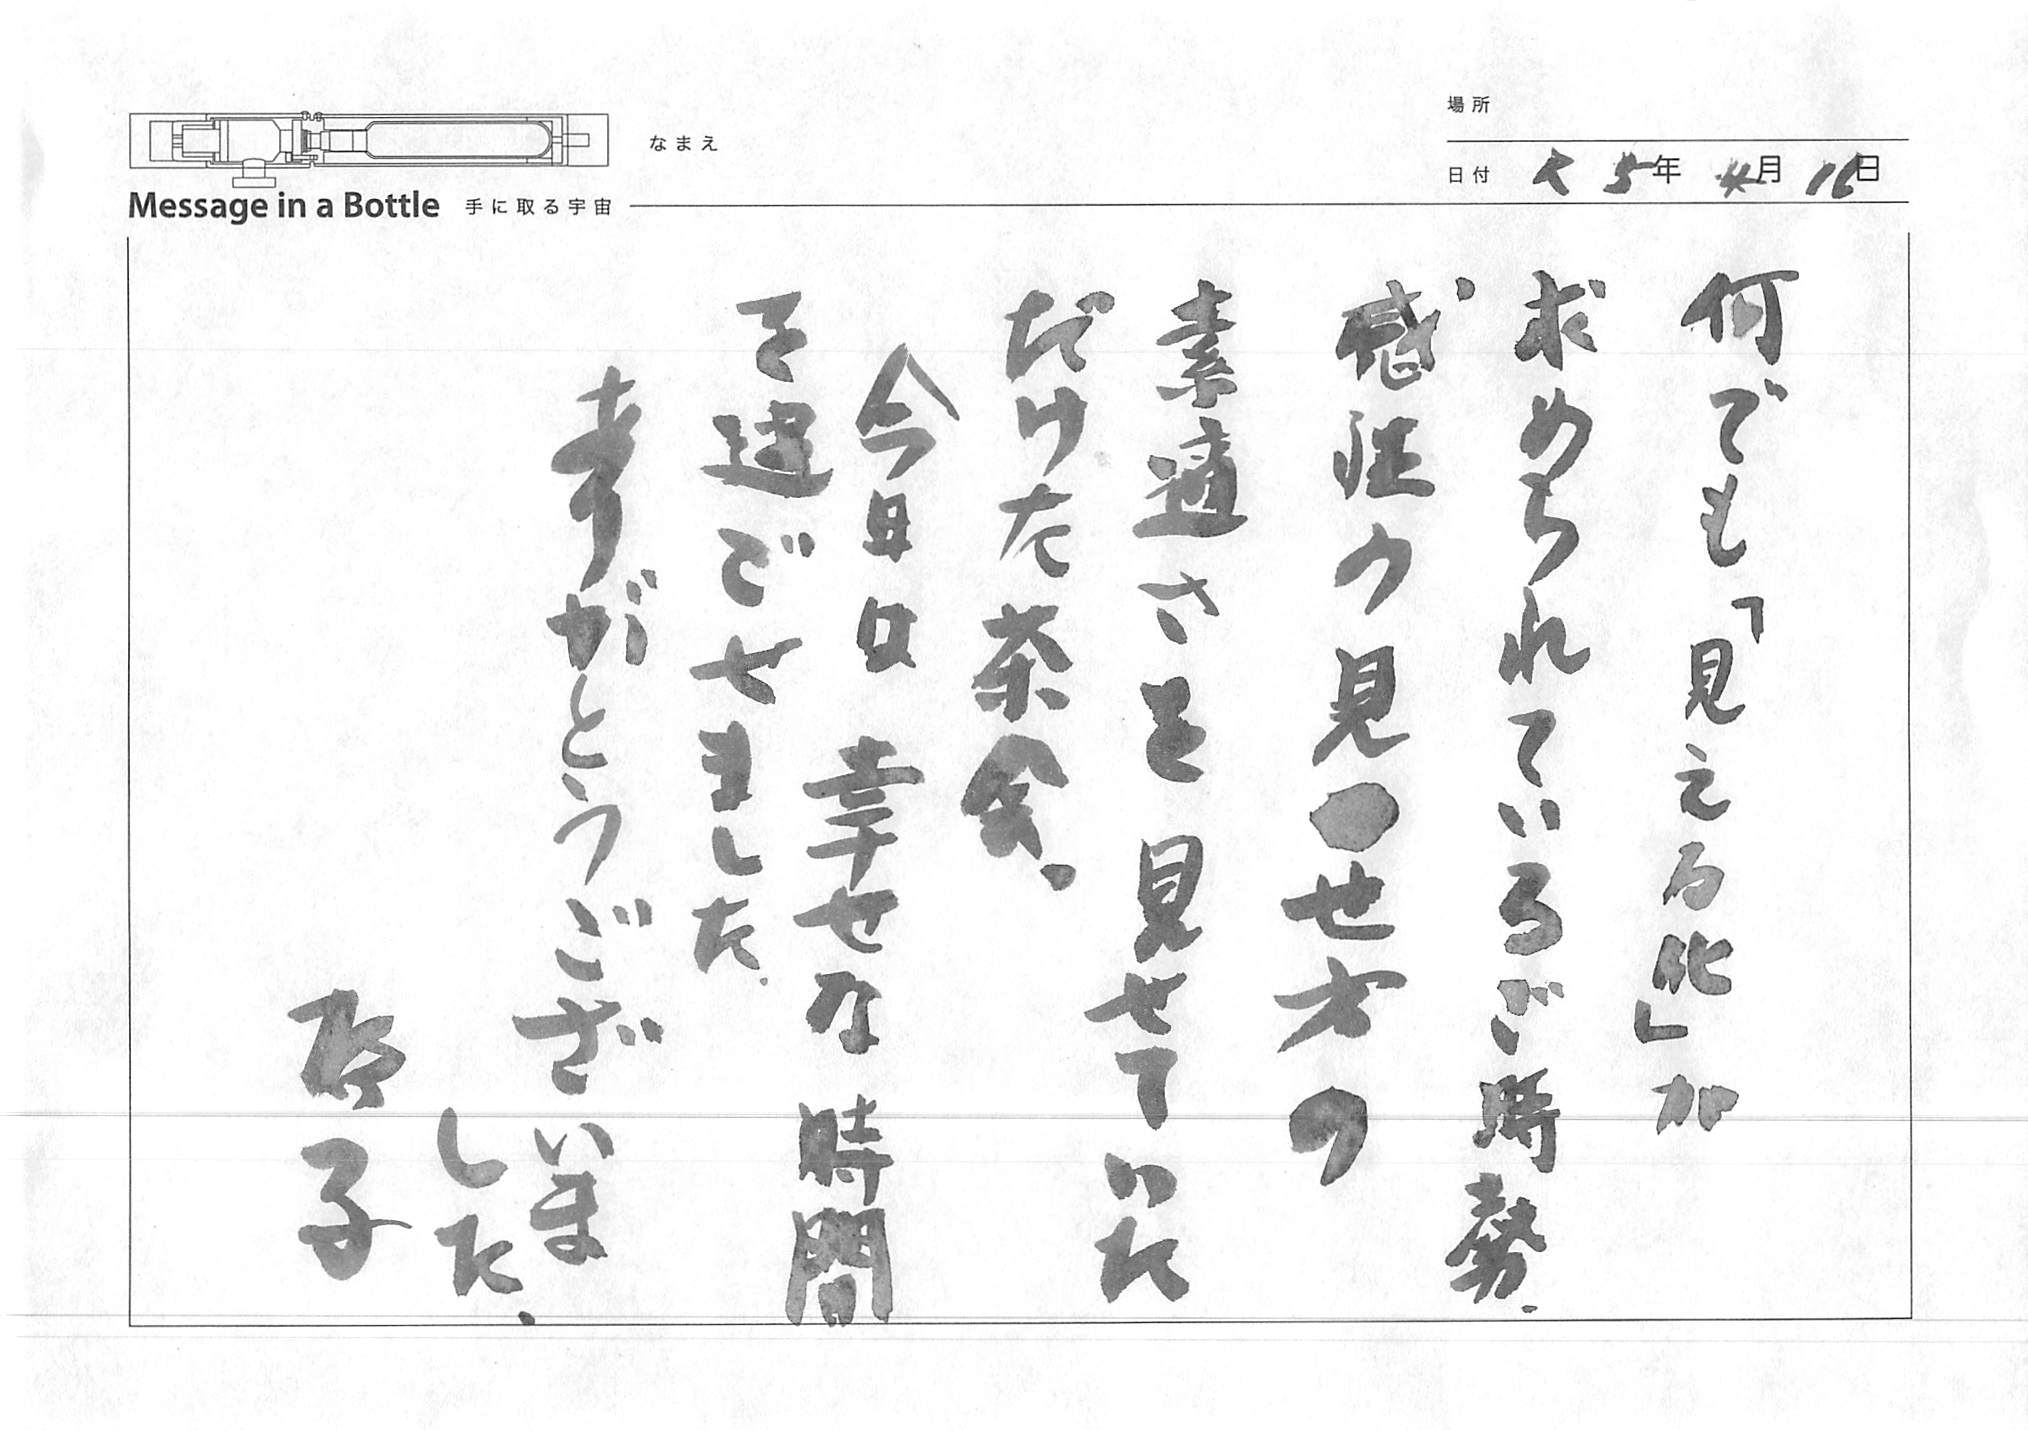 Message in a Bottle 手に取る宇宙
なまえ
場所
日付 5年 4月 16日
何でも「見える化」が
求められているご時勢。
感性の見せ方の
素適さを見せていた
だけた茶会、
今日は幸せな時間
を過ごせました。
ありがとうござい
ました。
子